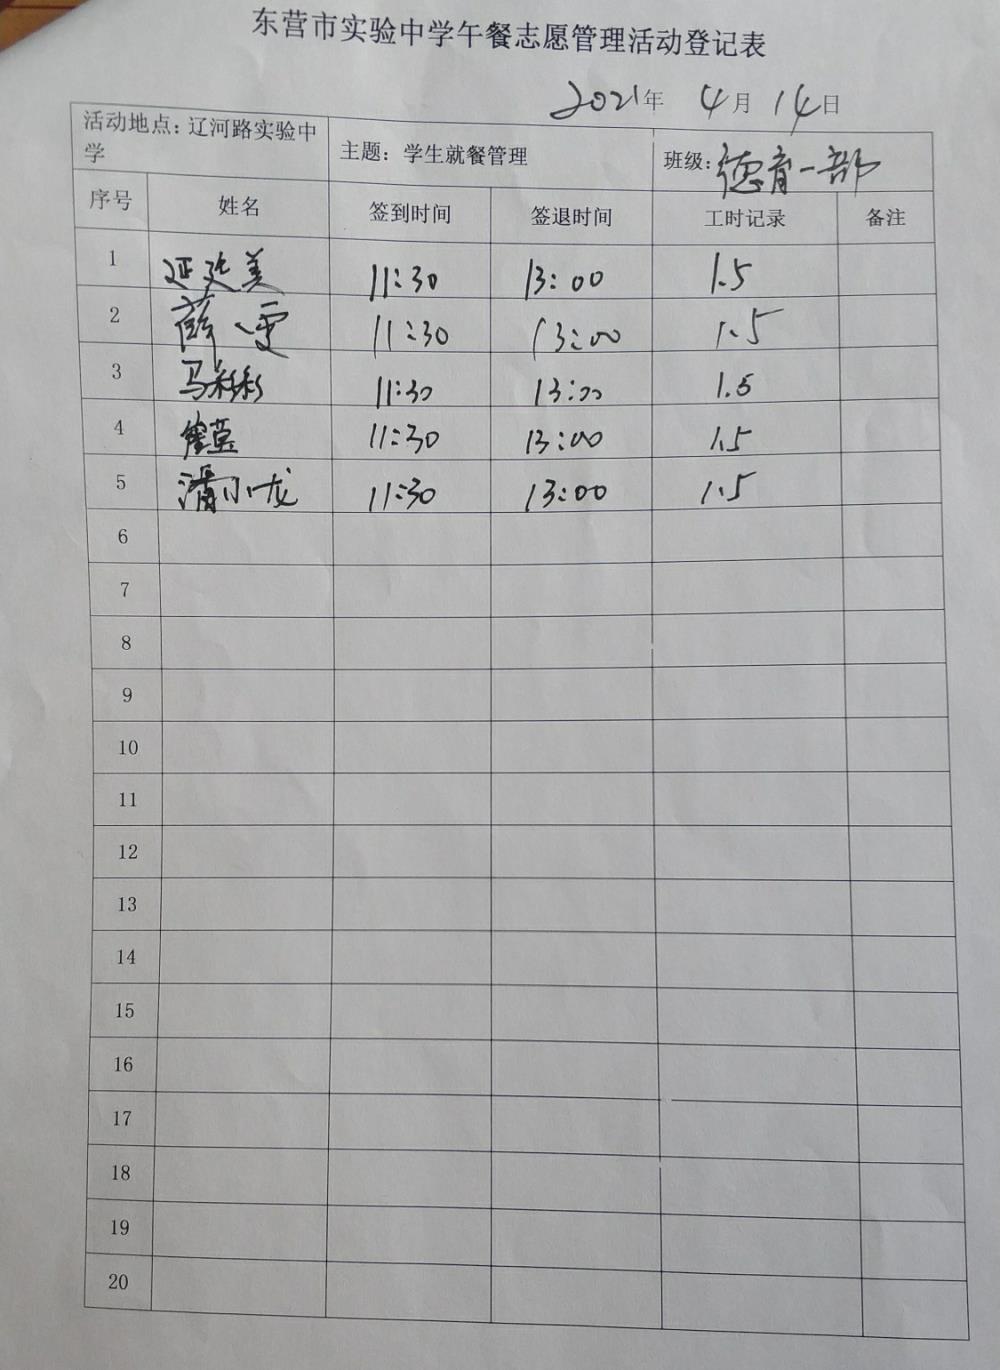 东营市实验中学午餐志愿管理活动登记表
2021年 4月 14日
活动地点：辽河路实验中学 主题：学生就餐管理 班级：德育一部
序号 姓名 签到时间 签退时间 工时记录 备注
1 延廷美 11:30 13:00 1.5
2 薛雯 11:30 13:00 1.5
3 马彩彩 11:30 13:00 1.5
4 崔莹 11:30 13:00 1.5
5 小龙 11:30 13:00 1.5
6
7
8
9
10
11
12
13
14
15
16
17
18
19
20